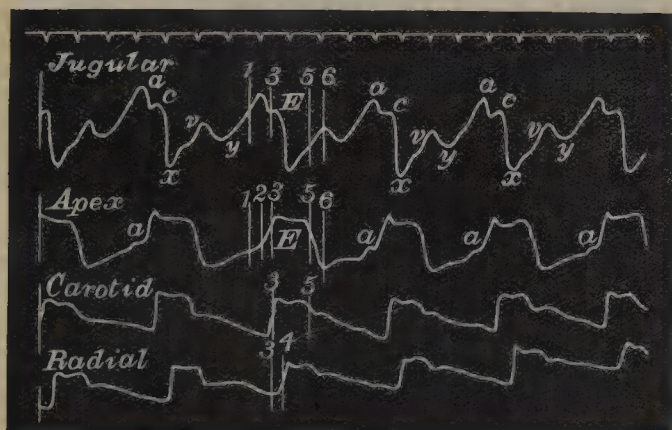 Jugular
a a a
c 1 3 E 5 6 c c
v y v y v y
x x x
Apex 1 2 3 5 6
a E a a a
Carotid 3 5
Radial 3 4